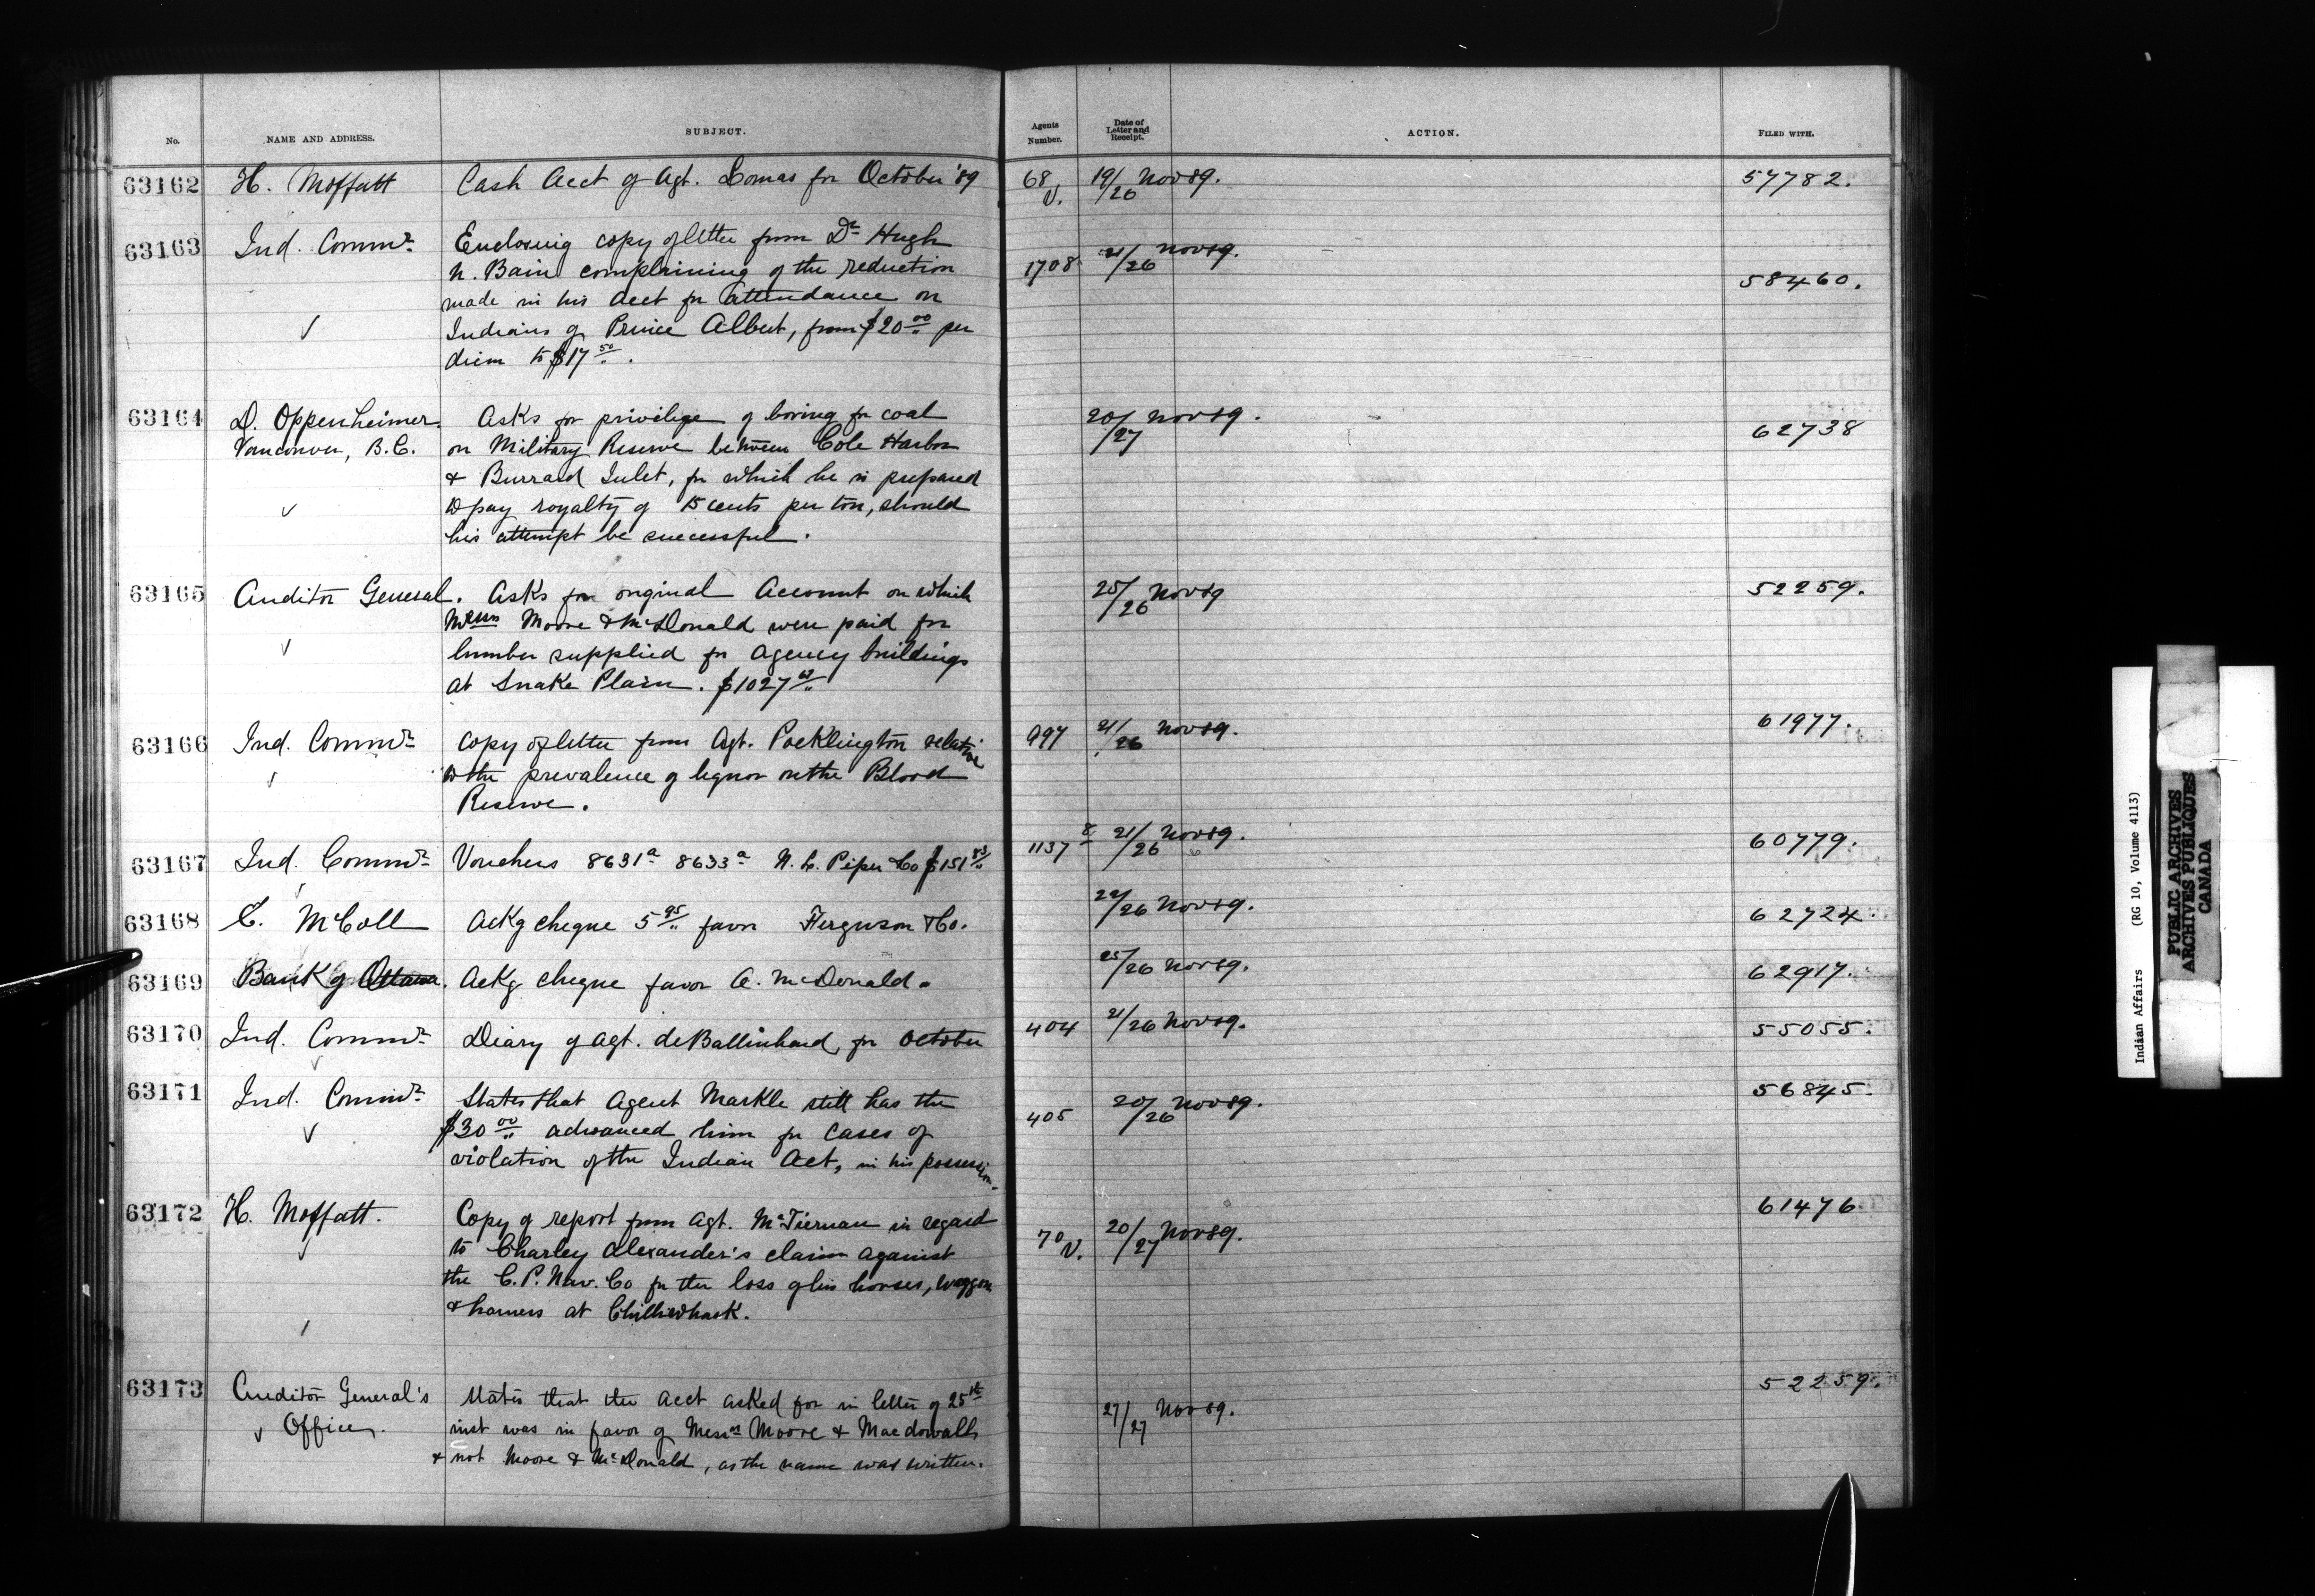 No. NAME AND ADDRESS. SUBJECT. Agents Number. Date of Letter and Receipt. ACTION. FILED WITH.
63162 H. Moffatt Cash Acct of Agt. Lomas for October '89 68 V. 19/26 Nov 89. 57782.
63163 Ind. Commr. Enclosing copy of letter from Dr Hugh 1708 21/26 Nov 89. 58460.
N. Bain complaining of the reduction
made in his Acct for attendance on
Indians of Prince Albert, from $20 00 per
diem to $17 50.
63164 D. Oppenheimer. Asks for privilege of boring for coal 20/27 Nov 89. 62738
Vancouver, B.C. on Military Reserve between Cole Harbor
& Burrard Inlet, for which he is prepared
to pay royalty of 15 cents per ton, should
his attempt be successful.
63165 Auditor General. Asks for original Account on which 25/26 Nov 89 52259.
Messrs Moore & McDonald were paid for
lumber supplied for Agency buildings
at Snake Plain. $1027
63166 Ind. Commr. Copy of letter from Agt. Pocklington relative 997 21/26 Nov 89. 61977.
to the prevalence of liquor on the Blood
Reserve.
63167 Ind. Commr. Vouchers 8631a 8633a N. L. Piper & Co $151 83 1137 8 21/26 Nov 89. 60779.
63168 E. McColl Ackg cheque 5 95 favor Ferguson & Co. 22/26 Nov 89. 62724.
63169 Bank of Ottawa. Ackg cheque favor A. McDonald. 25/26 Nov 89. 62917.
63170 Ind. Commr. Diary of Agt. de Ballinhard, for October 404 21/26 Nov 89. 55055.
63171 Ind. Commr. States that Agent Markle still has the 405 20/26 Nov 89. 56845.
$30 00 advanced him for cases of
violation of the Indian Act, in his possession.
63172 H. Moffatt. Copy of report from Agt. McTiernan in regard 70 V. 20/27 Nov 89. 61476.
to Charley Alexander's claim against
the C. P. Nav. Co for the loss of his horses, waggon
& harness at Chilliwhack.
63173 Auditor General's States that the Acct asked for in letter of 25th 27/27 Nov 89. 52259.
Office. inst was in favor of Messrs Moore & Macdowall
& not Moore & McDonald, as the name was written.
Indian Affairs (RG 10, Volume 4113)
PUBLIC ARCHIVES
ARCHIVES PUBLIQUES
CANADA